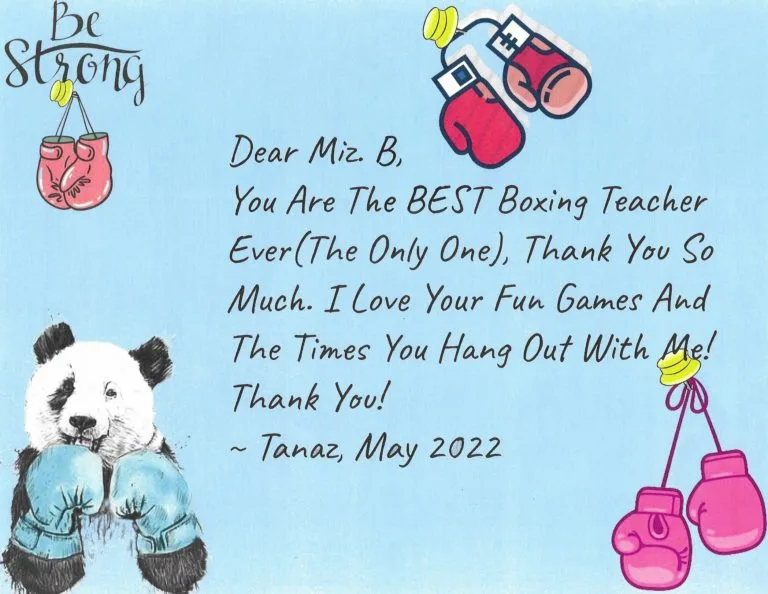 Be
Strong
Dear Miz. B,
You Are The BEST Boxing Teacher
Ever(The Only One), Thank You So
Much. I Love Your Fun Games And
The Times You Hang Out With Me!
Thank You!
~ Tanaz, May 2022